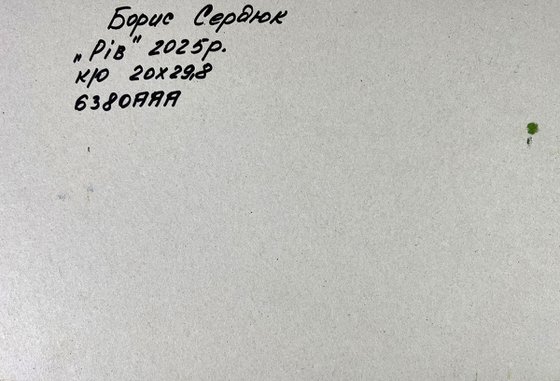 Борис Сердюк
„Рів" 2025р.
к/о 20х29,8
6380ААА